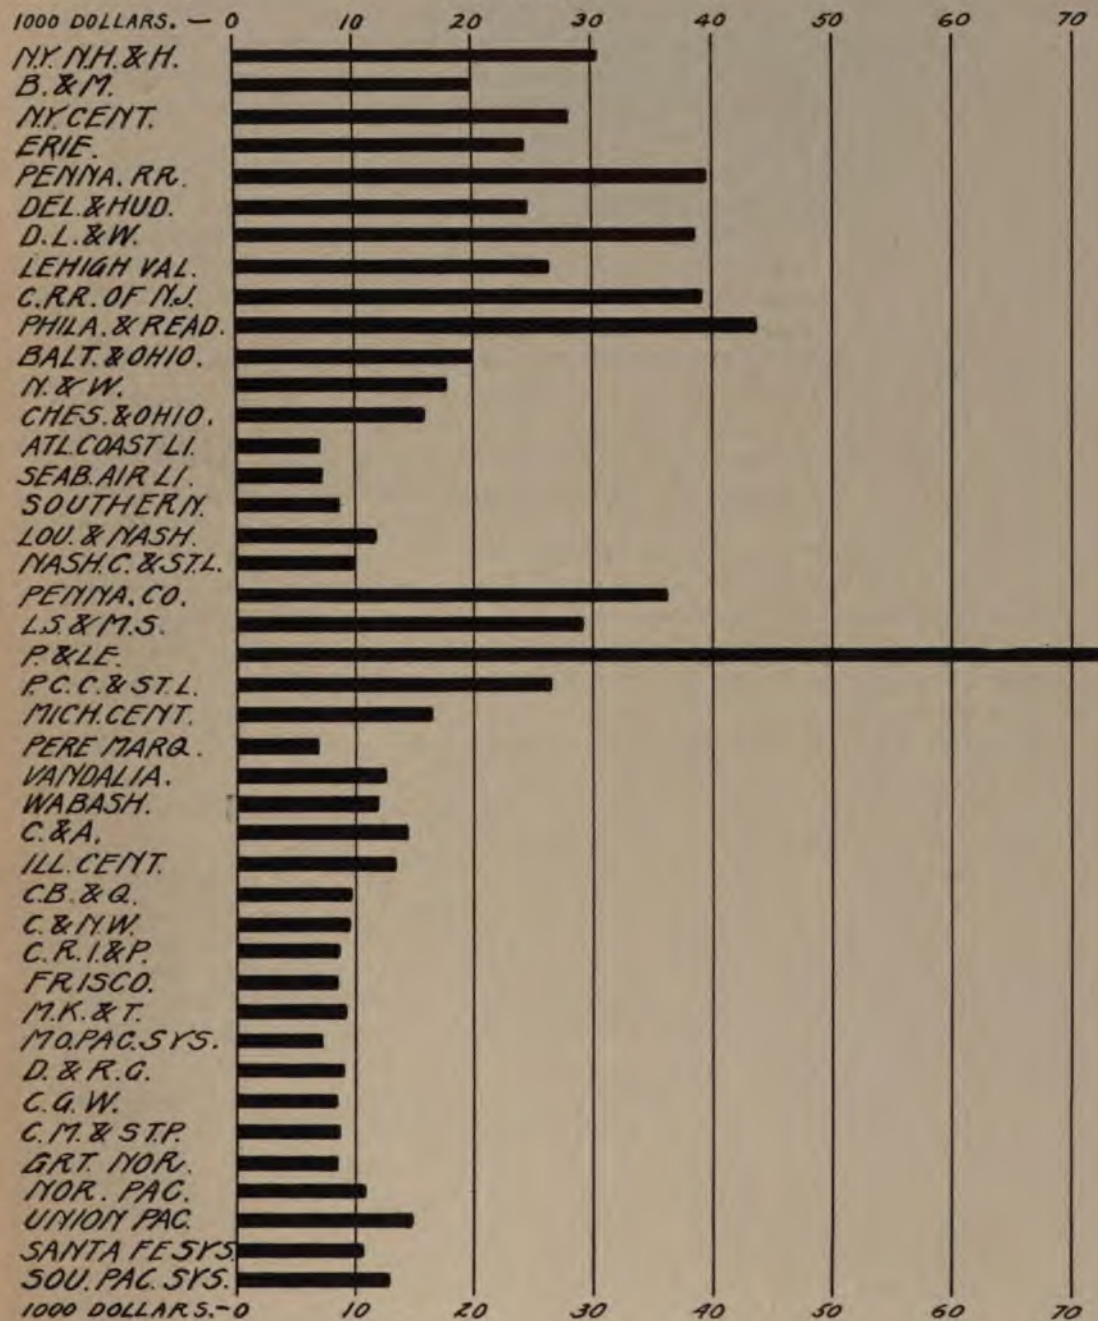 1000 DOLLARS. — 0 10 20 30 40 50 60 70
N.Y. N.H. & H.
B. & M.
N.Y. CENT.
ERIE.
PENNA. RR.
DEL. & HUD.
D. L. & W.
LEHIGH VAL.
C. RR. OF N.J.
PHILA. & READ.
BALT. & OHIO.
N. & W.
CHES. & OHIO.
ATL. COAST LI.
SEAB. AIR LI.
SOUTHERN.
LOU. & NASH.
NASH. C. & ST. L.
PENNA. CO.
L.S. & M.S.
P. & L.E.
P. C. C. & ST. L.
MICH. CENT.
PERE MARQ.
VANDALIA.
WABASH.
C. & A.
ILL. CENT.
C.B. & Q.
C. & N.W.
C. R. I. & P.
FRISCO.
M. K. & T.
MO. PAC. SYS.
D. & R. G.
C. G. W.
C. M. & ST. P.
GRT. NOR.
NOR. PAC.
UNION PAC.
SANTA FE SYS.
SOU. PAC. SYS.
1000 DOLLARS. - 0 10 20 30 40 50 60 70